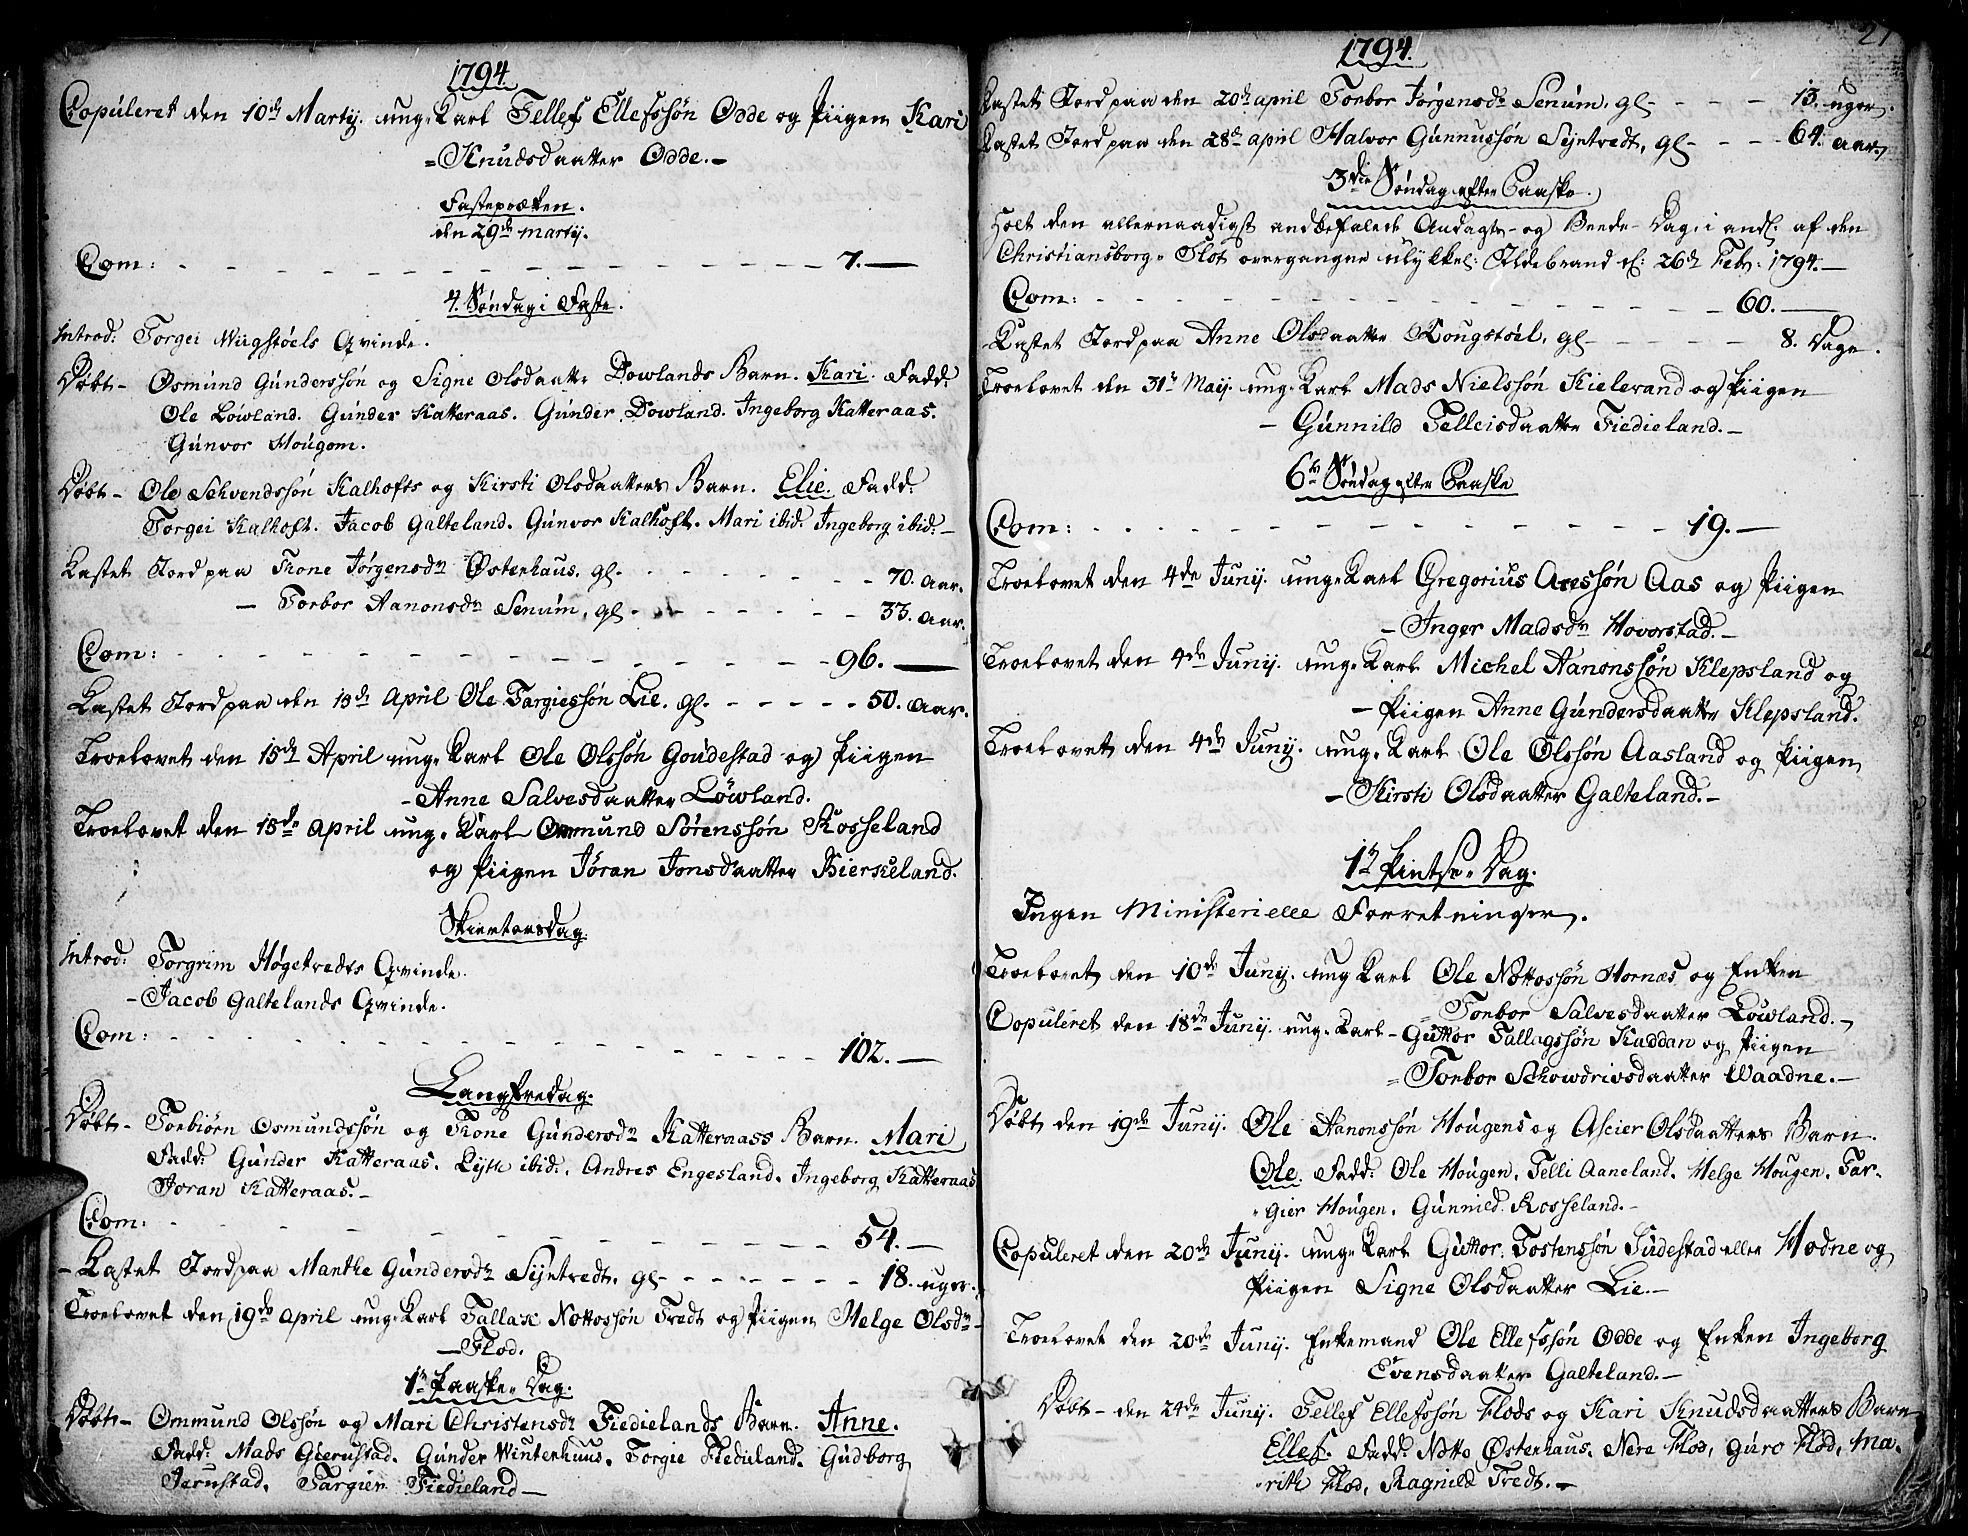 1794
Copuleret den 10de Martij. ung-Karl Tellef Ellefssøn Odde og Piigen Kari
= Knudsdaatter Odde. -
Fasteprækken.
den 29de Martij.
Com: - - - 7. -
4. Søndag i Faste.
Introd: Torgei Wiigstøels Qvinde.
Døbt - Osmund Gunderssøn og Signe Olsdaatter Dowlands Barn. Kari. Fadd:
Ole Løwland. Gunder Katteraas. Gunder Dowland. Ingeborg Katteraas.
Gunvor Hougom.
Døbt - Ole Schvendssøn Kalhofts og Kirsti Olsdaatters Barn. Elie. Fadd:
Torgei Kalhoft. Jacob Galteland. Gunvor Kalhoft. Mari ibid: Ingeborg ibid: -
Kastet Jord paa Tone Jørgensdr Østerhaus. gl. - - - 70. Aar.
- Torbor Aanonsdr Senum, gl. - - - 33. Aar.
Com: - - - 96. -
Kastet Jord paa den 15de April Ole Targiessøn Lie. gl. - - - 50. Aar.
Troelovet den 15de April ung-Karl Ole Olssøn Goudestad og Piigen
- Anne Salvesdaatter Løwland.
Troelovet den 15de April ung-Karl Ommund Sørenssøn Kosseland
og Piigen Jøran Jonsdaatter Bierkeland.
Skiertorsdag.
Introd: Torgrim Høgetvedts Qvinde.
- Jacob Galtelands Qvinde.
Com: - - - 102. -
Langfredag.
Døbt - Torbiørn Osmundssøn og Tone Gundersdr Katteraass Barn. Mari
Fadd: Gunder Katteraas. ibid: Andres Engesland. Ingeborg Katteraas
Joran Katteraas. -
Com: - - - 54. -
- Kastet Jord paa Manthe Gundersdr Syntvedt. gl - - - 18. uger.
Troelovet den 19de April ung-Karl Tallak Nottossøn Tvedt og Piigen Helge Olsdr -
- Flod.
1te Paaske-Dag.
Døbt - Ommund Olssøn og Mari Christensdr Fiedielands Barn. Anne.
Fadd: Mads Gierustad. Gunder Winterhuus. Torgie Fiedieland. Gudborg
Jerustad. Targier Fiedieland -
1794.
27
Kastet Jord paa den 20de April Torbor Jørgensdr Senum. gl - - - 13. uger.
Kastet Jord paa den 28de April Halvor Gunnussøn Syntvedt, gl - - - 64. aar.
3die Søndag efter Paaske.
Holt den allernaadigst andbefalede Andagts- og Beede-Dag, i anl: af den
Christiansborgs Slot overgangne ulykkel: Ildebrand d: 26de Febr: 1794. -
Com: - - - 60. -
Kastet Jord paa Anne Olsdaatter Kougstøel, gl - - - 8. Dage.
Troelovet den 31te Maij. ung-Karl Mads Nielssøn Kielevand og Piigen
- Gunnild Telleisdaatter Fiedieland. -
6te Søndag efter Paaske
Com: - - - 19. -
Troelovet den 4de Junij. ung-Karl Gregorius Aressøn Aas og Piigen
- Inger Madsdr Hovorstad. -
Troelovet den 4de Junij. ung-Karl Michel Aanonssøn Klepsland og
- Piigen Anne Gundersdaatter Klepsland.
Troelovet den 4de Junij. ung-Karl Ole Olssøn Aasland og Piigen
- Kirsti Olsdaatter Galteland. -
1te Pintse-Dag.
Ingen Ministerielle Forretninger.
Troelovet den 10de Junij. ung Karl Ole Nottossøn Hornæs og Enken
= Torbor Salvesdaatter Løwland. -
Copuleret den 18de Junij. ung-Karl - Guttor Tallagssøn Kaddan og Piigen
= Torbor Schowdrivsdaatter Waadne. -
Døbt den 19de Junij. Ole Aanonssøn Hougens og Ascier Olsdaatters Barn.
Ole. Fadd: Ole Hougen. Telli Aaneland. Helge Hougen. Tar-
gier Hougen. Gunnild Rosseland. -
Copuleret den 20de Junij. ung-Karl Guttor Tostenssøn Sudestad eller Hodne og
Piigen Signe Olsdaatter Lie. -
Troelovet den 20de Junij. Enkemand Ole Ellefssøn Odde og Enken Ingeborg
Evensdaatter Galteland. -
Døbt - den 24de Junij. Tellef Ellefssøn Flods og Kari Knudsdaatters Barn
Ellef. Fadd: Notto Østerhaus. Nere Flod, Guro Flod, Ma-
rith Flod, Ragnild Tvedt. -